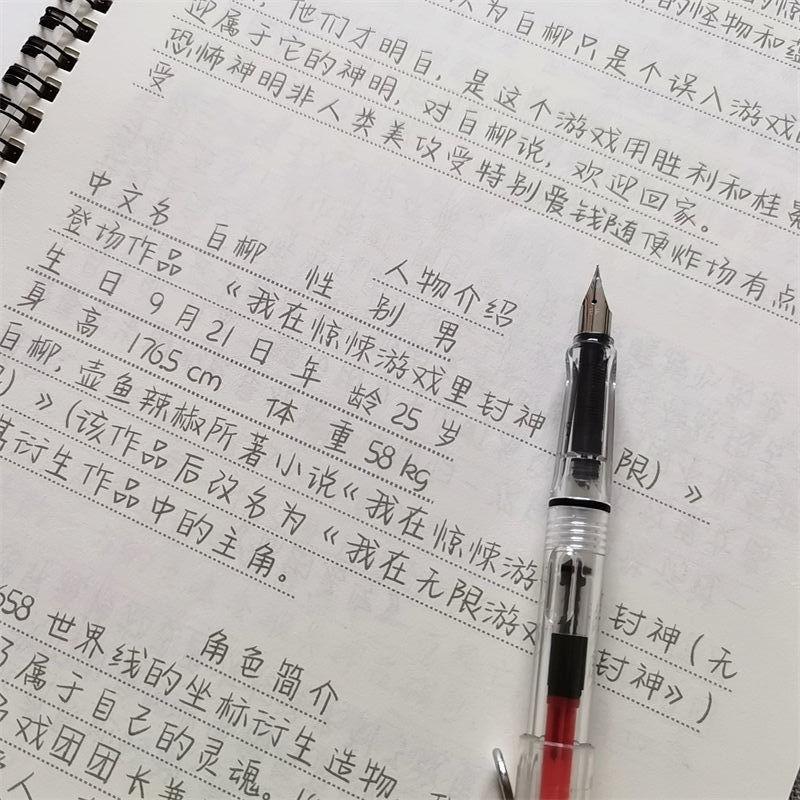 的怪物和
为白柳只是个误入游戏
，他们才明白，是这个游戏用胜利和桂冠
迎属于它的神明，对白柳说，欢迎回家。
恐怖神明非人类美攻受特别爱钱随便炸场有点
受
人物介绍
中文名 白柳 性 别 男
登场作品 《我在惊悚游戏里封神 限）》
生 日 9月21日 年 龄 25 岁
身 高 1765 cm 体 重 58 kg
白柳，壶鱼辣椒所著小说《我在惊悚游 封神(无
）》(该作品后改名为《我在无限游戏 封神》)
其衍生作品中的主角。
角色简介
658 世界线的坐标衍生造物，
属于自己的灵魂。
戏团团长兼
人